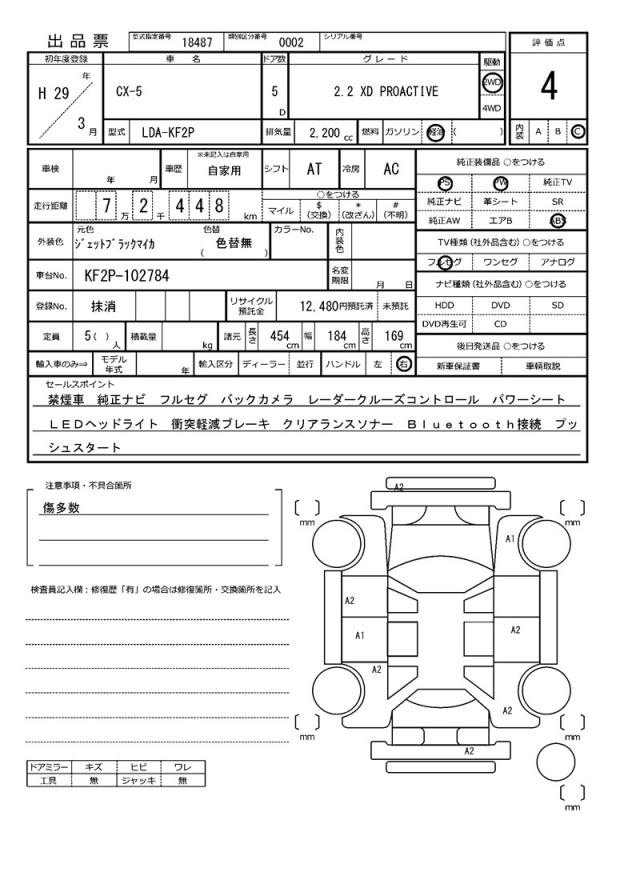 出品票 型式指定番号 18487 類別区分番号 0002 シリアル番号
評価点
4
内装 A B C
初年度登録 車名 ドア数 グレード 駆動
H 29 年 3 月
CX-5 5 D 2.2 XD PROACTIVE 2WD 4WD
型式 LDA-KF2P 排気量 2,200 cc 燃料 ガソリン 軽油 ( )
車検 年 月 車歴 ※未記入は自家用 自家用 シフト AT 冷房 AC
走行距離 7 万 2 千 4 4 8 km ○をつける マイル $(交換) *(改ざん) #(不明)
外装色 元色 ジェットブラックマイカ 色替 ( 色替無 ) カラーNo. 内装色
車台No. KF2P-102784 名変期限 月 日
登録No. 抹消 リサイクル預託金 12,480円預託済 未預託
定員 5( )人 積載量 kg 諸元 長さ 454 cm 幅 184 cm 高さ 169 cm
輸入車のみ⇒ モデル年式 年 輸入区分 ディーラー 並行 ハンドル 左 右
純正装備品 ○をつける
PS PW 純正TV
純正ナビ 革シート SR
純正AW エアB ABS
TV種類(社外品含む)○をつける
フルセグ ワンセグ アナログ
ナビ種類(社外品含む)○をつける
HDD DVD SD
DVD再生可 CD
後日発送品 ○をつける
新車保証書 車輌取説
セールスポイント
禁煙車 純正ナビ フルセグ バックカメラ レーダークルーズコントロール パワーシート
LEDヘッドライト 衝突軽減ブレーキ クリアランスソナー Bluetooth接続 プッ
シュスタート
注意事項・不具合箇所
傷多数
検査員記入欄:修復歴「有」の場合は修復箇所・交換箇所を記入
ドアミラー キズ ヒビ ワレ
工具 無 ジャッキ 無
A2
mm
mm
A1
A2
A1
A2
A2
A2
mm
mm
A2
mm